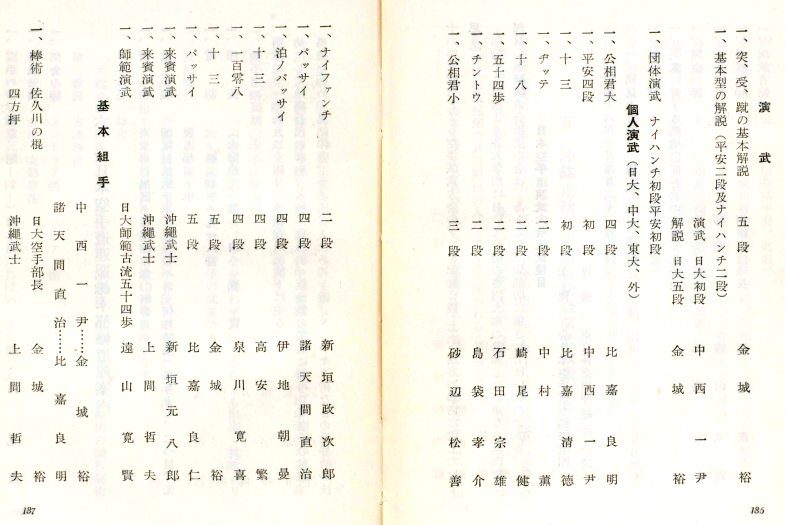 演武
一、突、受、蹴の基本解説 五段 金城裕
一、基本型の解説(平安二段及ナイハンチ二段)
演武 日大初段 中西一尹
解説 日大五段 金城裕
一、団体演武 ナイハンチ初段平安初段
個人演武(日大、中大、東大、外)
一、公相君大 四段 比嘉良明
一、平安四段 初段 中西一尹
一、十三 初段 比嘉清徳
一、ヂッテ 二段 中村薫
一、十八 二段 崎尾健
一、五十四歩 二段 石田宗雄
一、チントウ 二段 島袋孝介
一、公相君小 三段 砂辺松善
186
一、ナイファンチ 二段 新垣政次郎
一、バッサイ 四段 諸天間直治
一、泊ノバッサイ 四段 伊地朝曼
一、十三 四段 高安繁
一、一百零八 四段 泉川寛喜
一、十三 五段 金城裕
一、バッサイ 五段 比嘉良仁
一、来賓演武 沖縄武士 新垣元八郎
一、来賓演武 沖縄武士 上間哲夫
一、師範演武 日大師範古流五十四歩 遠山寛賢
基本組手
中西一尹……金城裕
諸天間直治……比嘉良明
一、棒術 佐久川の棍 日大空手部長 金城裕
四方拝 沖縄武士 上間哲夫
187